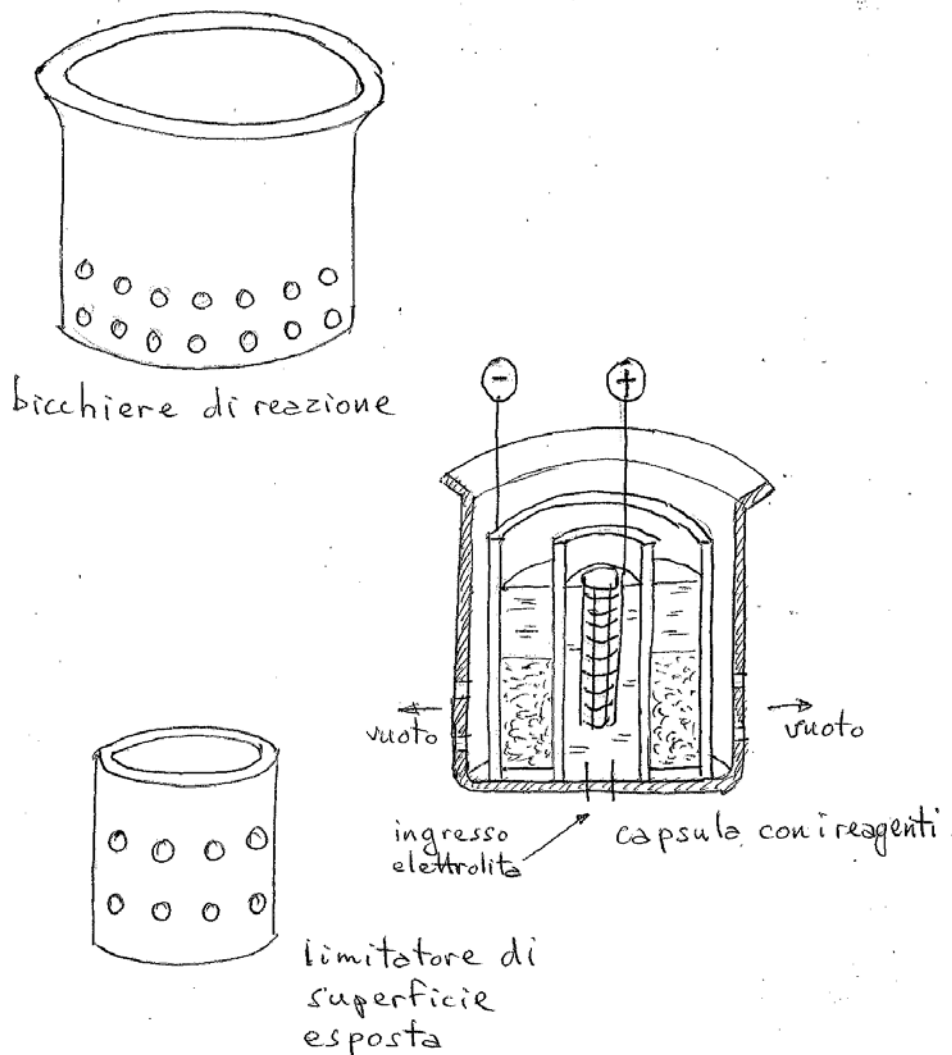 bicchiere di reazione
-
+
vuoto
vuoto
ingresso
elettrolita
capsula con i reagenti
limitatore di
superficie
esposta